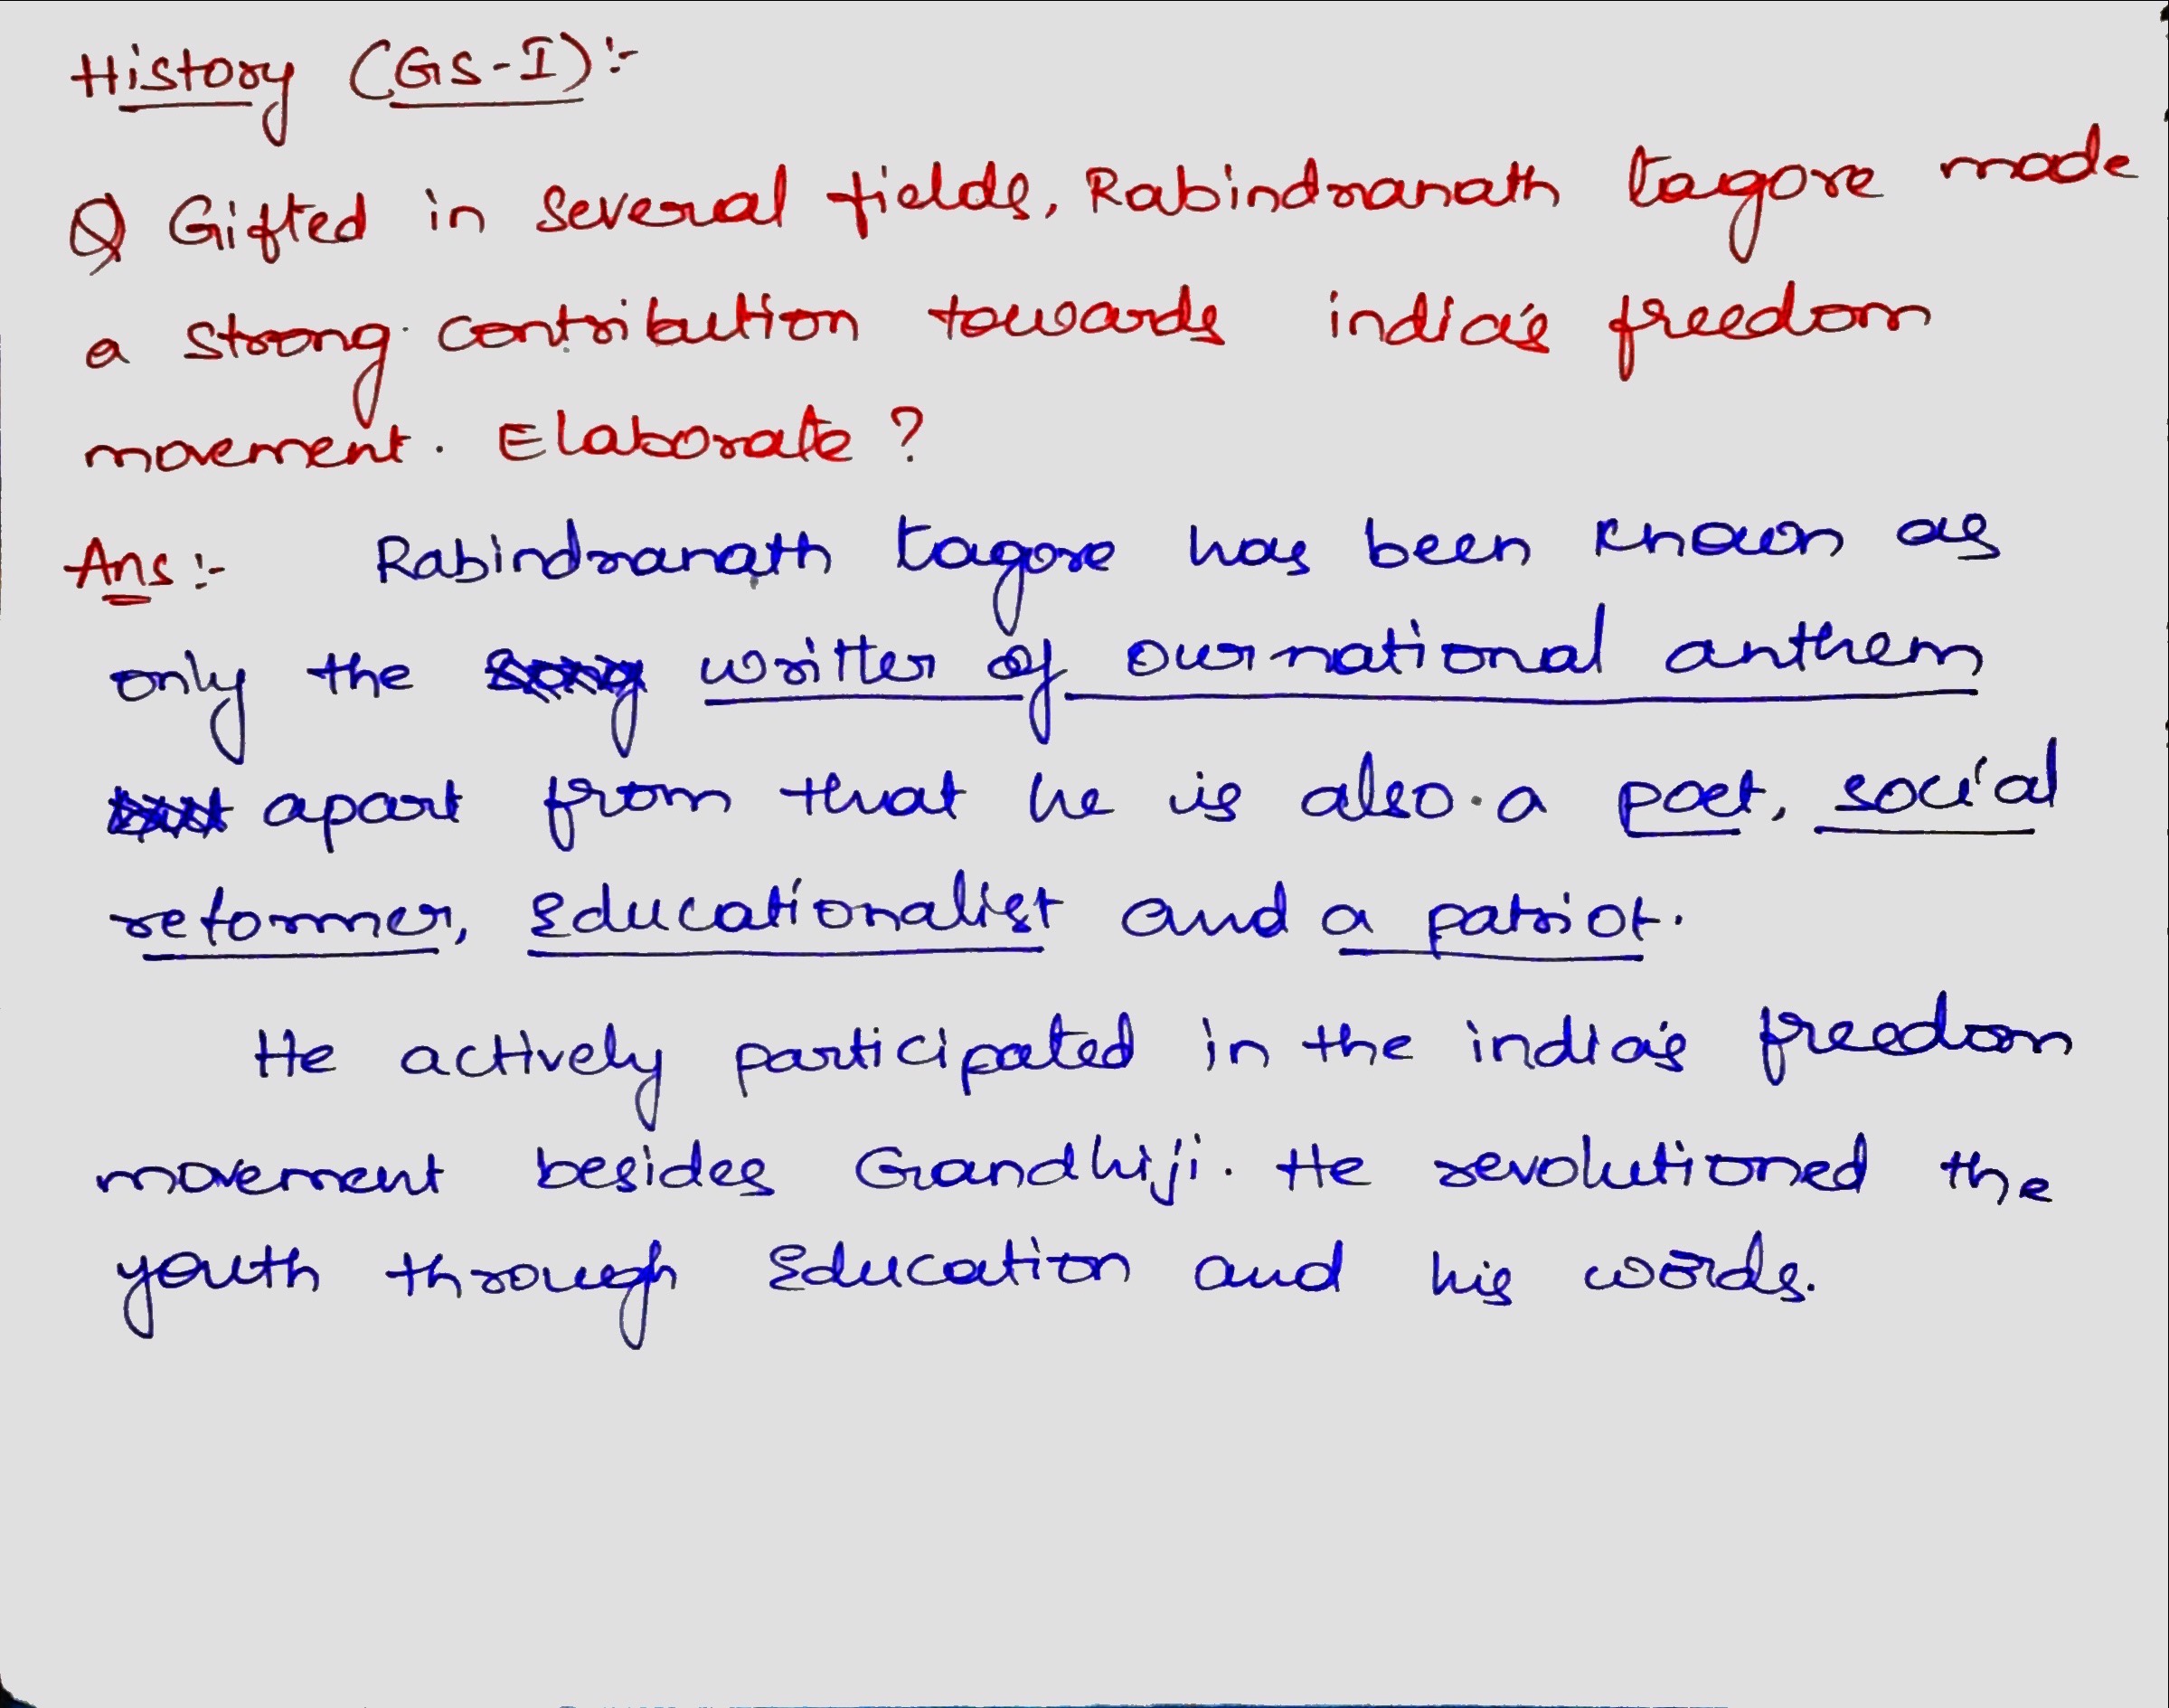 History (GS-I):-
Q Gifted in Several fields, Rabindranath tagore made
a strong contribution towards india's freedom
movement. Elaborate?
Ans:- Rabindranath tagore has been known as
only the writter of our national anthem
apart from that he is also a poet, social
reformer, Educationalist and a patriot.
He actively participated in the india's freedom
movement besides Gandhiji. He revolutioned the
youth through Education and his words.